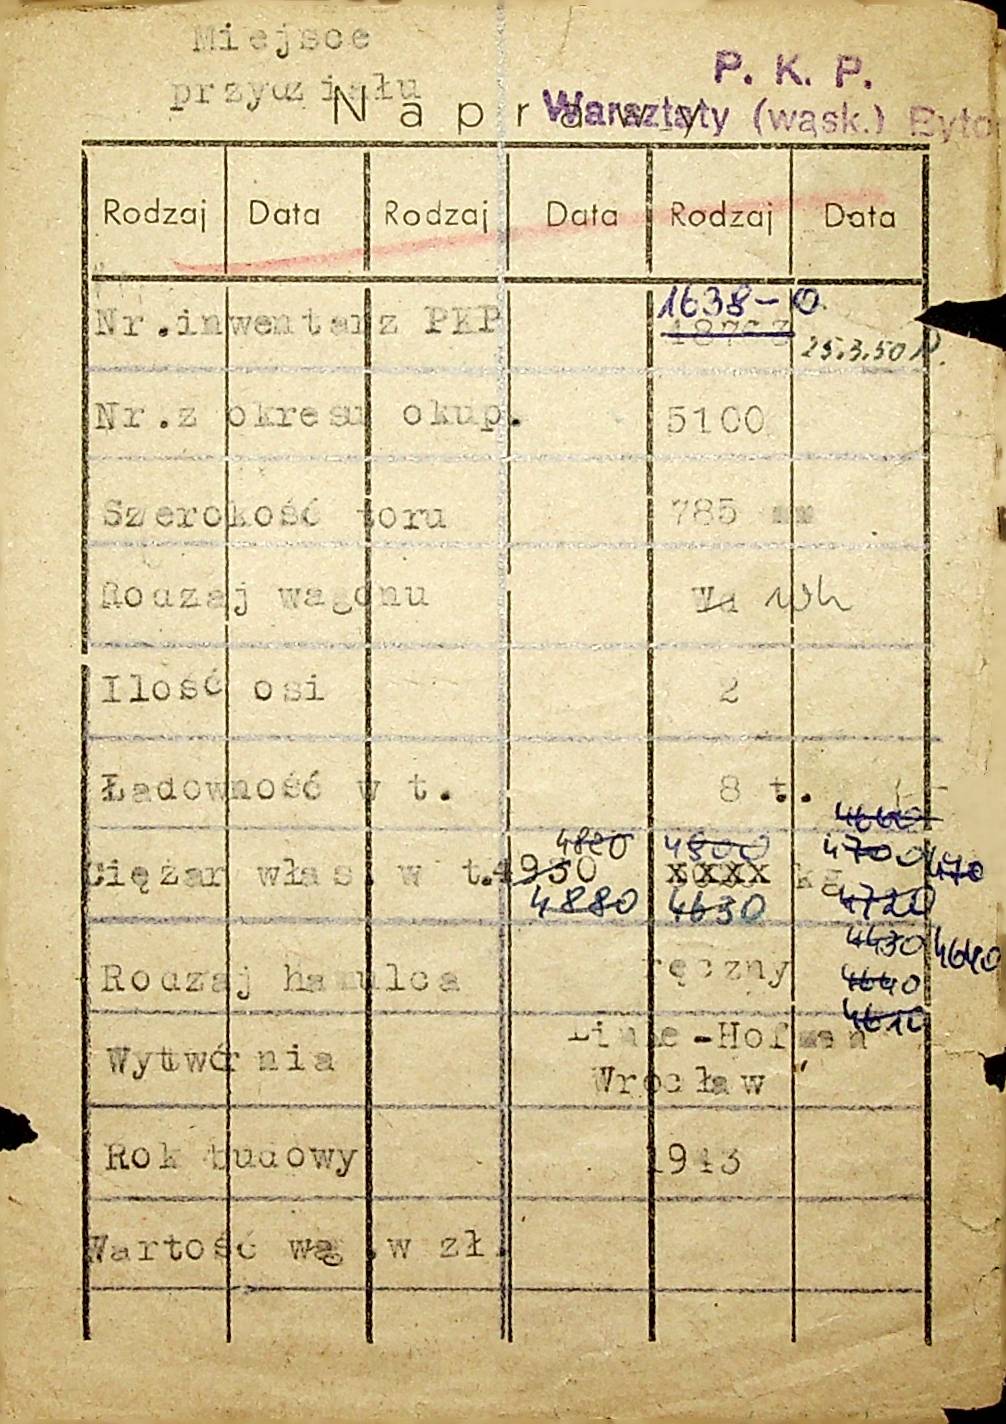 Miejsce
przydziału
P. K. P.
Naprawy
Warsztaty (wąsk.) Byto
Rodzaj Data Rodzaj Data Rodzaj Data
1638-0
Nr.inwentarz PKP 25.3.50
Nr.z okresu okup. 5100
Szerokość toru 785 mm
Rodzaj wagonu Wd Wh
Ilość osi 2
Ładowność w t. 8 t.
4660
4820 4800 4700 4470
Ciężar włas. w t. 4950 xxxx kg
4880 4630 4720
4430 4640
Rodzaj hamulca ręczny 4640
4610
Wytwórnia Linke-Hofman
Wrocław
Rok budowy 1943
Wartość wag.w zł.